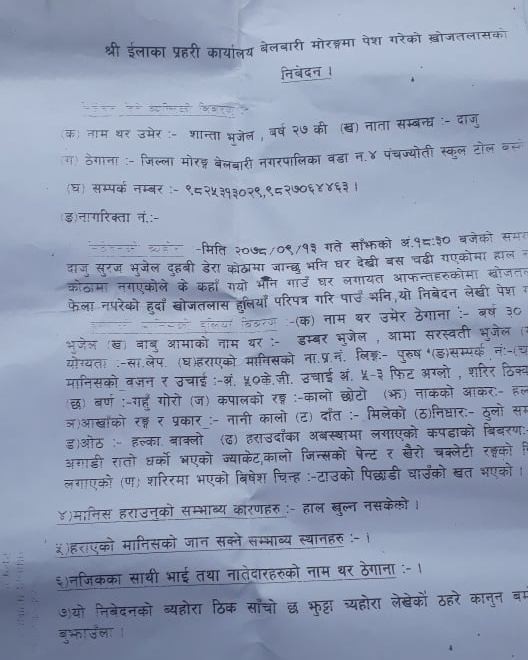 श्री ईलाका प्रहरी कार्यालय बेलबारी मोरङ्गमा पेश गरेको खोजतलासको
निबेदन ।
(क) नाम थर उमेर :- शान्ता भुजेल , बर्ष २७ की (ख) नाता सम्बन्ध :- दाजु
(ग) ठेगाना :- जिल्ला मोरङ्ग बेलबारी नगरपालिका वडा न.४ पंचज्योती स्कुल टोल बस्ने
(घ) सम्पर्क नम्बर :- ९८२५३१३०२९,९८२७०६४४६३ ।
(ङ)नागरिकता नं.:-
-मिति २०७८/०९/१३ गते साँझको अं.१८:३० बजेको समय
दाजु सुरज भुजेल दुहबी डेरा कोठामा जान्छु भनि घर देखी बस चढी गएकोमा हाल
कोठामा नगएकोले के कहाँ गयो भनि गाउँ घर लगायत आफन्तहरुकोमा खोजतल
फेला नपरेको हुदाँ खोजतलास हुलियाँ परिपत्र गरि पाउँ भनि,यो निबेदन लेखी पेश
-(क) नाम थर उमेर ठेगाना :- बर्ष ३०
भुजेल (ख) बाबु आमाको नाम थर :- डम्बर भुजेल , आमा सरस्वती भुजेल
योग्यता :-सा.लेप. (घ)हराएको मानिसको ना.प्र.नं. लिङ्ग:- पुरुष (ङ)सम्पर्क नं:-(च)
मानिसको वजन र उचाई :-अं. ५०के.जी. उचाई अं. ५-३ फिट अग्लो , शरिर ठिक्य
(छ) बर्ण :-गहुँ गोरो (ज) कपालको रङ्ग :-कालो छोटो (झ) नाकको आकर:-
ञ)आखाँको रङ्ग र प्रकार :- नानी कालो (ट) दाँत :- मिलेको (ठ)निधार:- ठुलो सम
ड)ओठ :- हल्का बाक्लो (ढ) हराउदाँका अबस्थामा लगाएको कपडाको बिबरण:-
अगाडी रातो धर्को भएको ज्याकेट,कालो जिन्सको पेन्ट र खैरो चक्लेटी रङ्गको
लगाएको (ण) शरिरमा भएको बिषेश चिन्ह :-टाउको पिछाडी घाउँको खत भएको ।
४)मानिस हराउनुको सम्भाब्य कारणहरु :- हाल खुल्न नसकेको ।
५)हराएको मानिसको जान सक्ने सम्भाब्य स्थानहरु :- ।
६)नजिकका साथी भाई तथा नातेदारहरुको नाम थर ठेगाना :- ।
७)यो निबेदनको ब्यहोरा ठिक साँचो छ झुठ्ठा ब्यहोरा लेखेको ठहरे कानुन बम
बुझाउँला ।